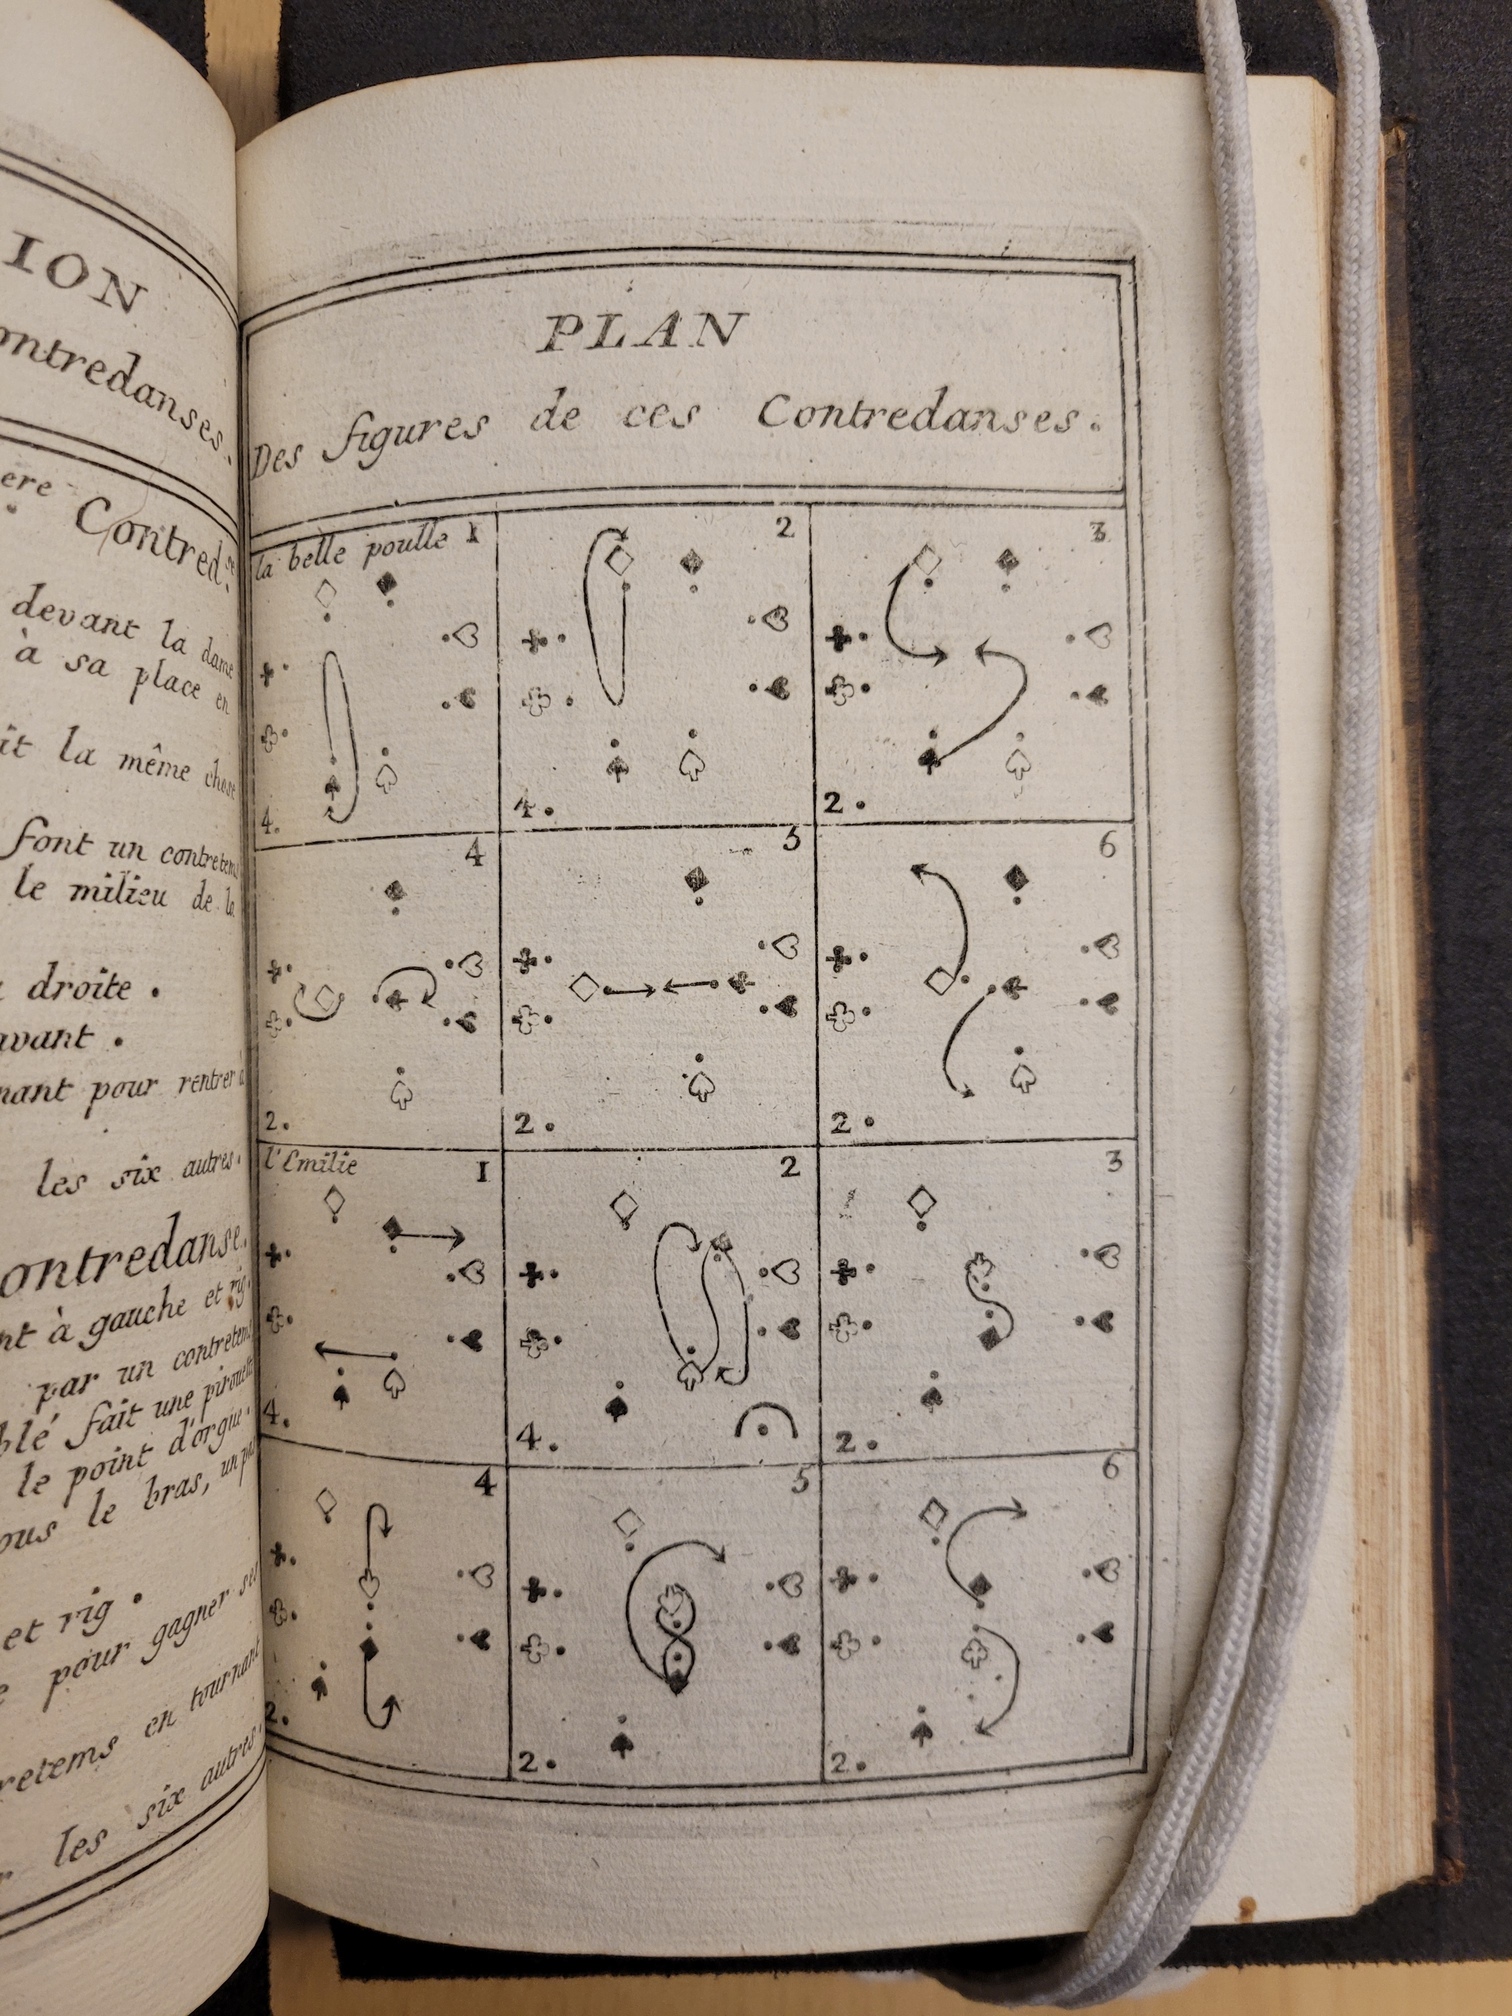 ION
ontredanses.
ere Contred.se
devant la dame
à sa place en
it la même chose
font un contretems
le milieu de la
droite.
avant.
nant pour rentrer à
les six autres.
ontredanse.
nt à gauche et rig.
par un contretems
blé fait une pirouette
le point d'orgue.
ous le bras, un pas
et rig.
pour gagner ses
retems en tournant
les six autres.
PLAN
Des figures de ces Contredanses.
la belle poulle 1
4.
2
4.
3
2.
4
2.
5
2.
6
2.
l'Emilie 1
4.
2
4.
3
2.
4
2.
5
2.
6
2.